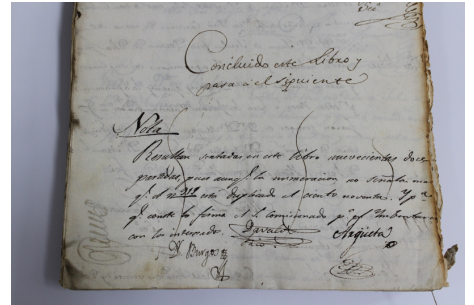 Concluido este Libro y
pasa a el siguiente
Nota
Resultan sentadas en este Libro nuevecientas doce
partidas, pues aunq.e la numeracion no señala mas
q.e el n.º está duplicado el ciento noventa. Y p.a
q.e conste la firma el S. Comicionado p.r
con los interesado
Burgos
Argueta